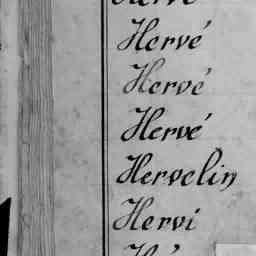 Hervé
Hervé
Hervé
Hervé
Hervelin
Hervi